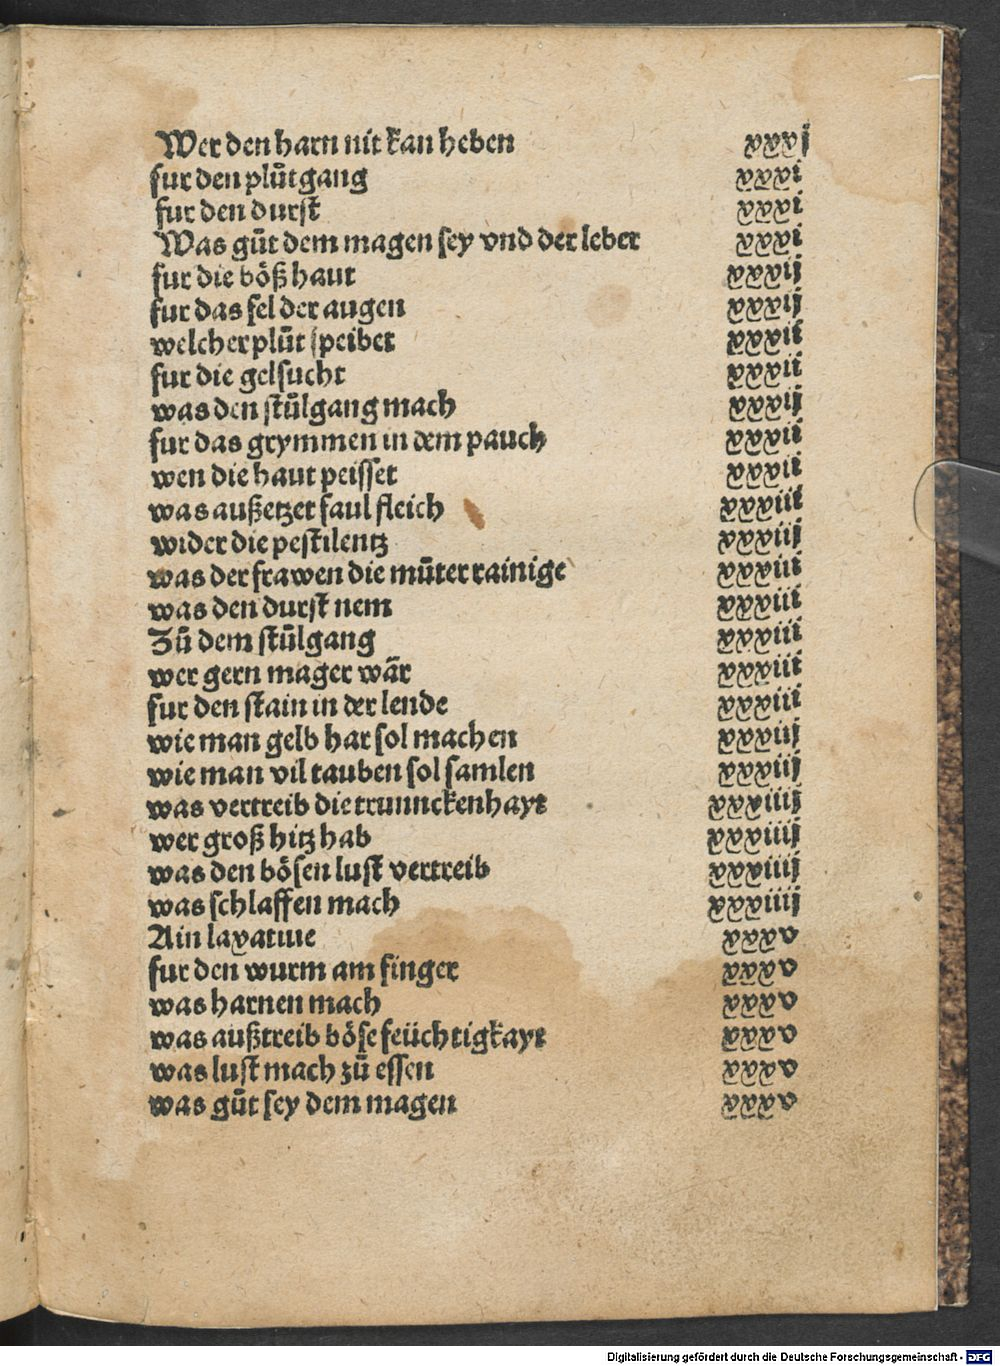 Wer den harn nit kan heben xxxj
fur den plůtgang xxxi
fur den durst xxxi
Was gůt dem magen sey vnd der leber xxxi
fur die böß haut xxxij
fur das fel der augen xxxij
welcher plůt speibet xxxii
fur die gelsucht xxxii
was den stůlgang mach xxxij
fur das grymmen in dem pauch xxxii
wen die haut peisset xxxii
was außetzet faul fleich xxxiii
wider die pestilentz xxxiij
was der frawen die můter rainige xxxiii
was den durst nem xxxiii
Zů dem stůlgang xxxiii
wer gern mager wår xxxiii
fur den stain in der lende xxxiii
wie man gelb har sol machen xxxiij
wie man vil tauben sol samlen xxxiij
was vertreib die trunnckenhayt xxxiiij
wer groß hitz hab xxxiiij
was den bösen lust vertreib xxxiiij
was schlaffen mach xxxiiij
Ain laxatiue xxxv
fur den wurm am finger xxxv
was harnen mach xxxv
was außtreib böse feüchtigkayt xxxv
was lust mach zů essen xxxv
was gůt sey dem magen xxxv
Digitalisierung gefördert durch die Deutsche Forschungsgemeinschaft - DFG